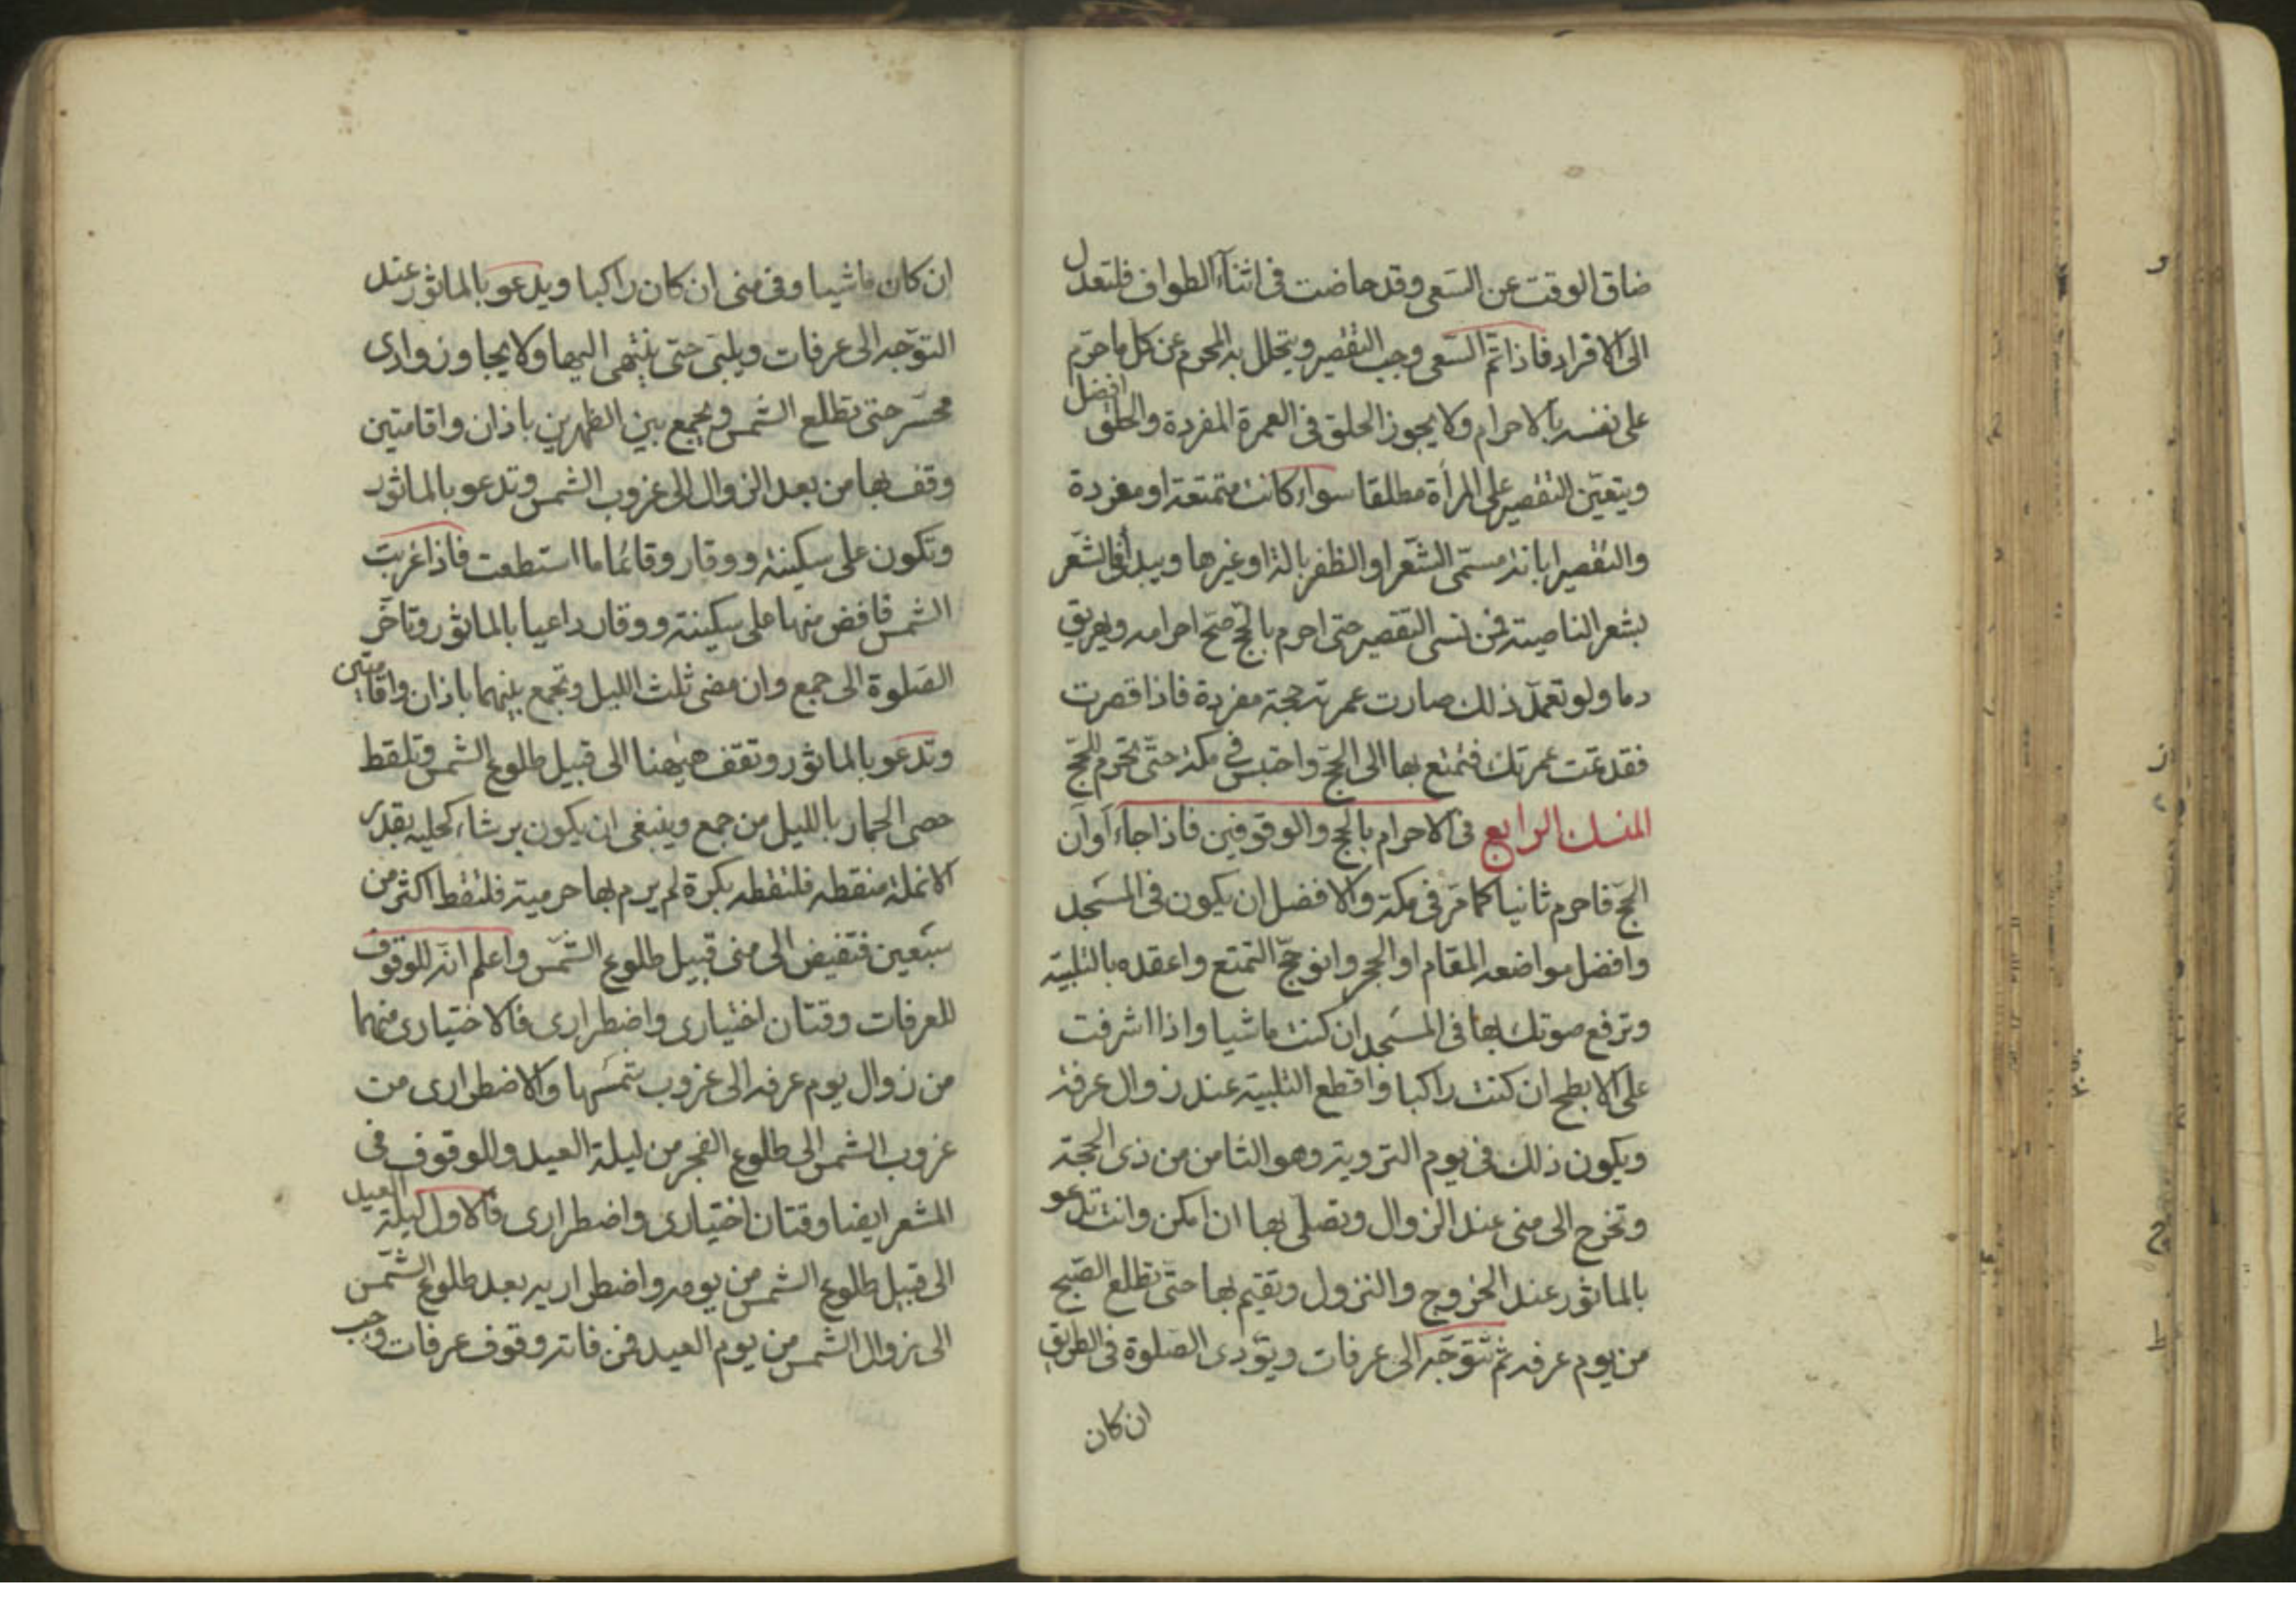 ضاق الوقت عن السّعى وقد حاضت فى اثنآء الطواف فلتعدل
الى الافراد فاذا تمّ السّعى وجب التقصير ويتحلل به المحرم عن كل ما حرّم
على نفسه بالاحرام ولا يجوز الحلق فى العمرة المفردة والحلق افضل
ويتعيّن التقصير على المرأة مطلقا سواء كانت متمتعة او مفردة
والتقصير ابانة مسمّى الشّعر او الظفر بالة او غيرها ويبدأ فى الشّعر
بشعر الناصية فمن نسى التقصير حتى احرم بالحجّ صحّ احرامه ويهريق
دما ولو تعمّد ذلك صارت عمرته حجة مفردة فاذا قصرت
فقد تمت عمرتك فتمتع بها الى الحجّ واحتبس فى مكة حتّى تحرم للحجّ
المنسك الرابع فى الاحرام بالحج والوقوفين فاذا جاء آوان
الحجّ فاحرم ثانيا كما مرّ فى مكة والافضل ان يكون فى المسجد
وافضل مواضعه المقام او الحجر وانو حجّ التمتع واعقده بالتلبية
وترفع صوتك بها فى المسجد ان كنت ماشيا واذا اشرفت
على الابطح ان كنت راكبا واقطع التلبية عند زوال عرفة
ويكون ذلك فى يوم التروية وهو الثامن من ذى الحجة
وتخرج الى منى عند الزوال وتصلّى بها ان امكن وانت تدعو
بالماثور عند الخروج والنزول وتقيم بها حتّى تطلع الصّبح
من يوم عرفه ثم تتوجّه الى عرفات ويؤدى الصّلوة فى الطريق
ان كان
ان كان ماشيا وفى منى ان كان راكبا ويدعو بالماثور عند
التوجّه الى عرفات ويلبّى حتى ينتهى اليها ولا يجاوز وادى
محسّر حتى تطلع الشمس وتجمع بين الظهرين باذان واقامتين
وقف بها من بعد الزوال الى غروب الشمس وتدعو بالماثور
وتكون على سكينة ووقار وقائما ما استطعت فاذا غربت
الشمس فافض منها على سكينة ووقار داعيا بالماثور وتاخّر
الصّلوة الى جمع وان مضى ثلث الليل وتجمع بينهما باذان واقامتين
وتدعو بالماثور وتقف هيهنا الى قبيل طلوع الشمس وتلقط
حصى الجمار بالليل من جمع وينبغى ان يكون برشاء كحلية بقدر
الانملة منقطه فلتقطه بكرة لم يرم بها حرمية فلتقط اكثر من
سبعين فتفيض الى منى قبيل طلوع الشّمس واعلم انّه للوقوف
للعرفات وقتان اختيارى واضطرارى فالاختيارى منهما
من زوال يوم عرفه الى غروب شمسها والاضطرارى من
غروب الشمس الى طلوع الفجر من ليلة العيد وللوقوف فى
المشعر ايضا وقتان اختيارى واضطرارى فالاول ليلة العيد
الى قبيل طلوع الشمس من يومه واضطراريه بعد طلوع الشّمس
الى زوال الشمس من يوم العيد فمن فاته وقوف عرفات وجب